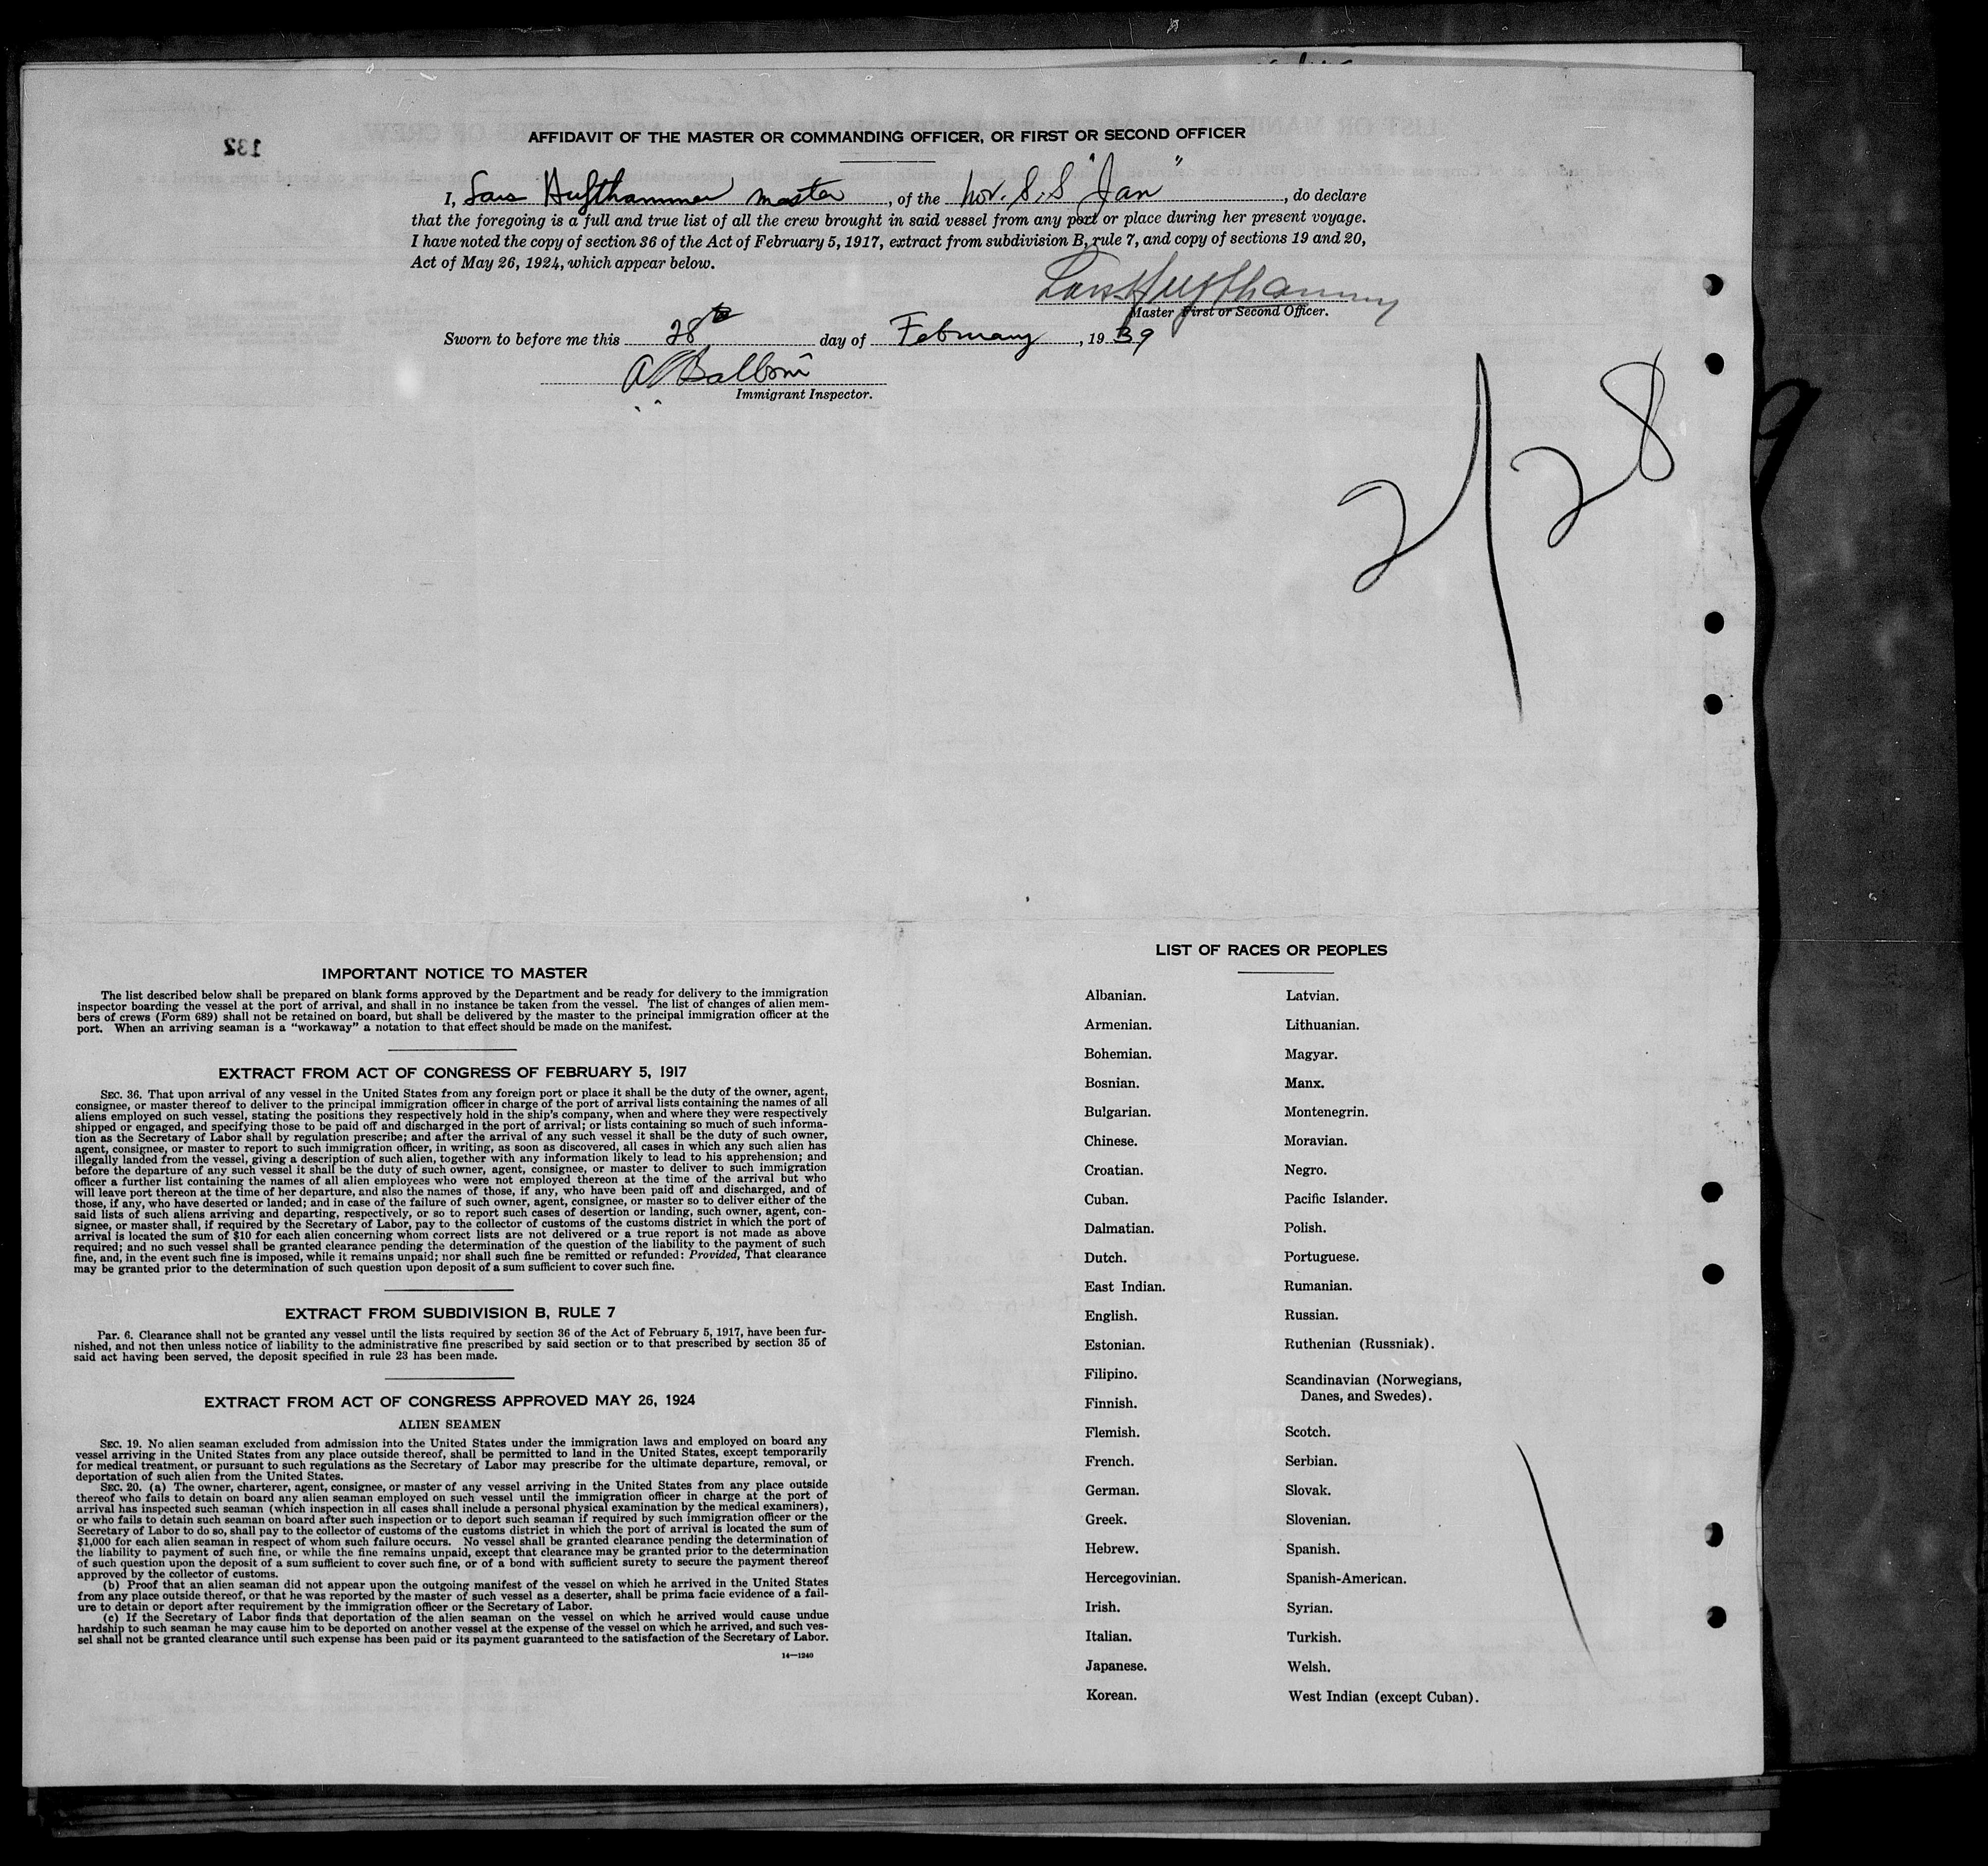 132
AFFIDAVIT OF THE MASTER OR COMMANDING OFFICER, OR FIRST OR SECOND OFFICER
I, Lars Hufthammer master, of the nor. S.S "Jan", do declare
that the foregoing is a full and true list of all the crew brought in said vessel from any port or place during her present voyage.
I have noted the copy of section 36 of the Act of February 5, 1917, extract from subdivision B, rule 7, and copy of sections 19 and 20,
Act of May 26, 1924, which appear below.
Lars Hufthammer
Master First or Second Officer.
Sworn to before me this 28th day of February, 1939
A Balboni
Immigrant Inspector.
2/28
IMPORTANT NOTICE TO MASTER
The list described below shall be prepared on blank forms approved by the Department and be ready for delivery to the immigration
inspector boarding the vessel at the port of arrival, and shall in no instance be taken from the vessel. The list of changes of alien mem-
bers of crews (Form 689) shall not be retained on board, but shall be delivered by the master to the principal immigration officer at the
port. When an arriving seaman is a "workaway" a notation to that effect should be made on the manifest.
EXTRACT FROM ACT OF CONGRESS OF FEBRUARY 5, 1917
SEC. 36. That upon arrival of any vessel in the United States from any foreign port or place it shall be the duty of the owner, agent,
consignee, or master thereof to deliver to the principal immigration officer in charge of the port of arrival lists containing the names of all
aliens employed on such vessel, stating the positions they respectively hold in the ship's company, when and where they were respectively
shipped or engaged, and specifying those to be paid off and discharged in the port of arrival; or lists containing so much of such informa-
tion as the Secretary of Labor shall by regulation prescribe; and after the arrival of any such vessel it shall be the duty of such owner,
agent, consignee, or master to report to such immigration officer, in writing, as soon as discovered, all cases in which any such alien has
illegally landed from the vessel, giving a description of such alien, together with any information likely to lead to his apprehension; and
before the departure of any such vessel it shall be the duty of such owner, agent, consignee, or master to deliver to such immigration
officer a further list containing the names of all alien employees who were not employed thereon at the time of the arrival but who
will leave port thereon at the time of her departure, and also the names of those, if any, who have been paid off and discharged, and of
those, if any, who have deserted or landed; and in case of the failure of such owner, agent, consignee, or master so to deliver either of the
said lists of such aliens arriving and departing, respectively, or so to report such cases of desertion or landing, such owner, agent, con-
signee, or master shall, if required by the Secretary of Labor, pay to the collector of customs of the customs district in which the port of
arrival is located the sum of $10 for each alien concerning whom correct lists are not delivered or a true report is not made as above
required; and no such vessel shall be granted clearance pending the determination of the question of the liability to the payment of such
fine, and, in the event such fine is imposed, while it remains unpaid; nor shall such fine be remitted or refunded: Provided, That clearance
may be granted prior to the determination of such question upon deposit of a sum sufficient to cover such fine.
EXTRACT FROM SUBDIVISION B, RULE 7
Par. 6. Clearance shall not be granted any vessel until the lists required by section 36 of the Act of February 5, 1917, have been fur-
nished, and not then unless notice of liability to the administrative fine prescribed by said section or to that prescribed by section 35 of
said act having been served, the deposit specified in rule 23 has been made.
EXTRACT FROM ACT OF CONGRESS APPROVED MAY 26, 1924
ALIEN SEAMEN
SEC. 19. No alien seaman excluded from admission into the United States under the immigration laws and employed on board any
vessel arriving in the United States from any place outside thereof, shall be permitted to land in the United States, except temporarily
for medical treatment, or pursuant to such regulations as the Secretary of Labor may prescribe for the ultimate departure, removal, or
deportation of such alien from the United States.
SEC. 20. (a) The owner, charterer, agent, consignee, or master of any vessel arriving in the United States from any place outside
thereof who fails to detain on board any alien seaman employed on such vessel until the immigration officer in charge at the port of
arrival has inspected such seaman (which inspection in all cases shall include a personal physical examination by the medical examiners),
or who fails to detain such seaman on board after such inspection or to deport such seaman if required by such immigration officer or the
Secretary of Labor to do so, shall pay to the collector of customs of the customs district in which the port of arrival is located the sum of
$1,000 for each alien seaman in respect of whom such failure occurs. No vessel shall be granted clearance pending the determination of
the liability to payment of such fine, or while the fine remains unpaid, except that clearance may be granted prior to the determination
of such question upon the deposit of a sum sufficient to cover such fine, or of a bond with sufficient surety to secure the payment thereof
approved by the collector of customs.
(b) Proof that an alien seaman did not appear upon the outgoing manifest of the vessel on which he arrived in the United States
from any place outside thereof, or that he was reported by the master of such vessel as a deserter, shall be prima facie evidence of a fail-
ure to detain or deport after requirement by the immigration officer or the Secretary of Labor.
(c) If the Secretary of Labor finds that deportation of the alien seaman on the vessel on which he arrived would cause undue
hardship to such seaman he may cause him to be deported on another vessel at the expense of the vessel on which he arrived, and such ves-
sel shall not be granted clearance until such expense has been paid or its payment guaranteed to the satisfaction of the Secretary of Labor.
14—1240
LIST OF RACES OR PEOPLES
Albanian.
Armenian.
Bohemian.
Bosnian.
Bulgarian.
Chinese.
Croatian.
Cuban.
Dalmatian.
Dutch.
East Indian.
English.
Estonian.
Filipino.
Finnish.
Flemish.
French.
German.
Greek.
Hebrew.
Hercegovinian.
Irish.
Italian.
Japanese.
Korean.
Latvian.
Lithuanian.
Magyar.
Manx.
Montenegrin.
Moravian.
Negro.
Pacific Islander.
Polish.
Portuguese.
Rumanian.
Russian.
Ruthenian (Russniak).
Scandinavian (Norwegians,
Danes, and Swedes).
Scotch.
Serbian.
Slovak.
Slovenian.
Spanish.
Spanish-American.
Syrian.
Turkish.
Welsh.
West Indian (except Cuban).